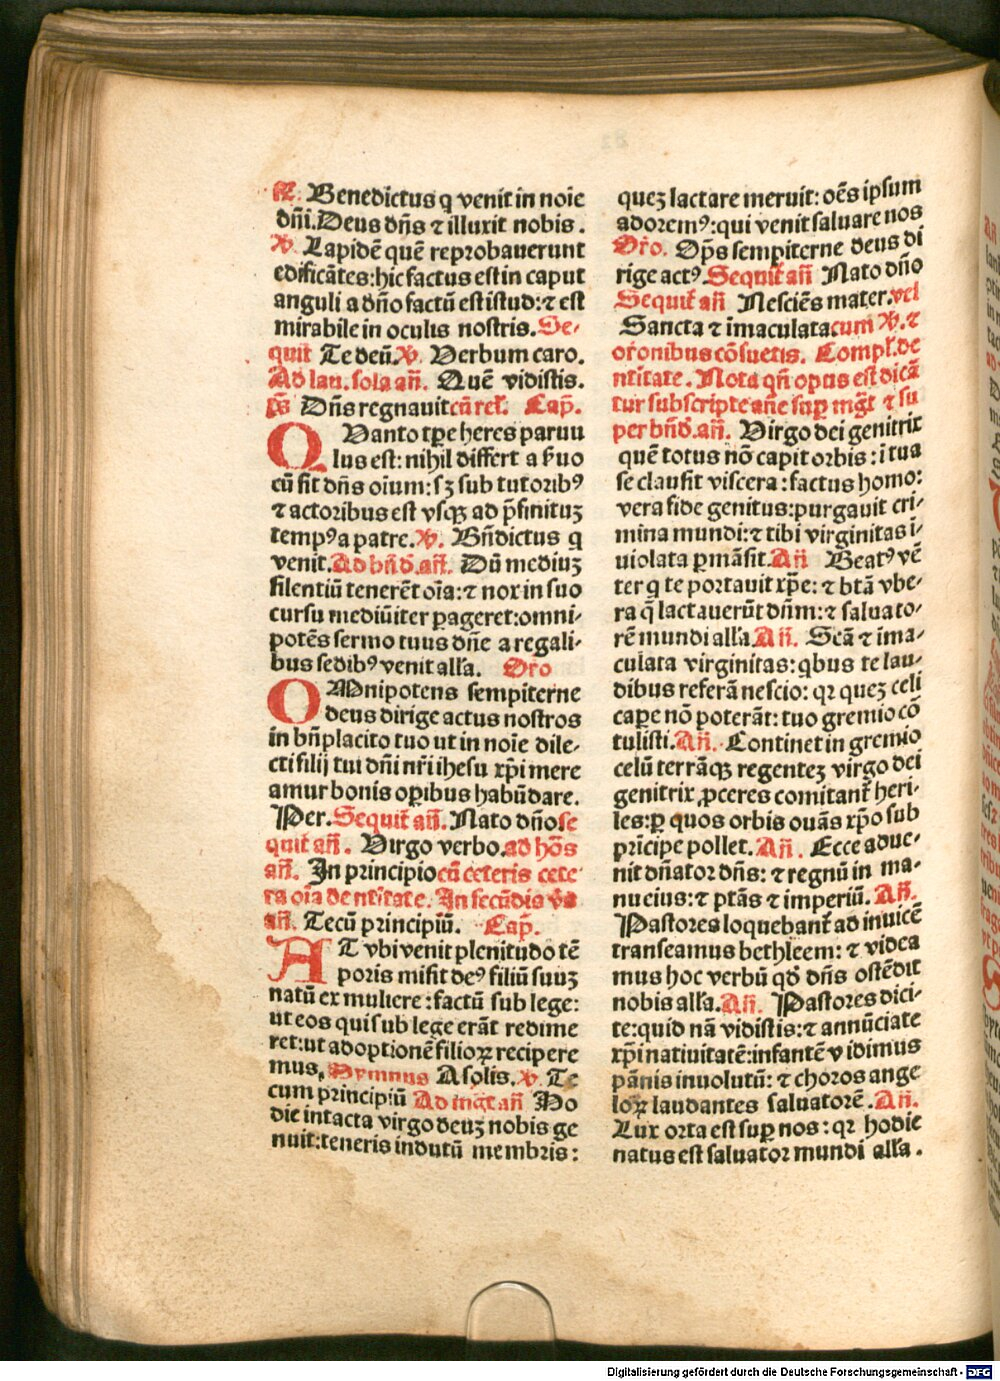 R. Benedictus q̄ venit in noīe
dñi. Deus dñs ⁊ illuxit nobis.
V. Lapidē quē reprobauerunt
edificātes: hic factus est in caput
anguli a dño factū est istud: ⁊ est
mirabile in oculis nostris. Se-
quit̄ Te deū. V. Verbum caro.
Ad lau. sola añ. Quē vidistis.
ps̄ Dñs regnauit cū rel̄. Cap̄.
QVanto tp̄e heres paruu
lus est: nihil differt a s̄uo
cū sit dñs oīum: sꝫ sub tutoribꝰ
⁊ actoribus est vsqꝫ ad p̄finituꝫ
tempꝰ a patre. V. Bñdictus q̄
venit. Ad bñd̄. añ. Dū mediuꝫ
silentiū tenerēt oīa: ⁊ nox in suo
cursu mediū iter ꝑageret: omni-
potēs sermo tuus dñe a regali-
bus sedibꝰ venit all̄a. Oro
OMnipotens sempiterne
deus dirige actus nostros
in bñplacito tuo ut in noīe dile-
cti filij tui dñi nr̄i ihesu xp̄i mere
amur bonis oꝑibus habūdare.
Per. Sequit̄ añ. Nato dño se
quit̄ añ. Virgo verbo. ad hōs
añ. In principio cū ceteris cete-
ra oīa de nt̄itate. In secūdis vīs
añ. Tecū principiū. Cap̄.
AT vbi venit plenitudo tē
poris misit deꝰ filiū suuꝫ
natū ex muliere: factū sub lege:
ut eos qui sub lege erāt redime
ret: ut adoptionē filioꝝ recipere
mus. Hymnus A solis. V. Te
cum principiū Ad mg̅t añ Ho
die intacta virgo deuꝫ nobis ge
nuit: teneris indutū membris:
queꝫ lactare meruit: oēs ipsum
adoremꝰ: qui venit saluare nos
Oro. Op̄s sempiterne deus di
rige actꝰ. Sequit̄ añ Nato dño
Sequit̄ añ Nesciēs mater. vel
Sancta ⁊ īmaculata. cum V. ⁊
orōnibus cōsuetis. Compl̄. de
ntītate. Nota qñ opus est dicā
tur subscripte añe suꝑ mg̅t ⁊ su
per bñd̄. añ. Virgo dei genitrix
quē totus nō capit orbis: ī tua
se clausit viscera: factus homo:
vera fide genitus: purgauit cri-
mina mundi: ⁊ tibi virginitas ī-
uiolata ꝑmāsit. Añ Beatꝰ vē
ter q̄ te portauit xp̄e: ⁊ btā vbe-
ra q̄ lactauerūt dñm: ⁊ saluato-
rē mundi all̄a. Añ. Scā ⁊ ima-
culata virginitas: qbus te lau-
dibus referā nescio: qꝛ queꝫ celi
caꝑe nō poterāt: tuo gremio cō
tulisti. Añ. Continet in gremio
celū terrāqꝫ regenteꝫ virgo dei
genitrix ꝓceres comitant̄ heri-
les: ꝑ quos orbis ouās xp̄o sub
prīcipe pollet. Añ. Ecce adue-
nit dñator dñs: ⁊ regnū in ma-
nu eius: ⁊ ptās ⁊ imperiū. Añ.
Pastores loquebant̄ ad inuicē
transeamus bethleem: ⁊ videa
mus hoc verbū qd̄ dñs ostēdit
nobis all̄a. Añ. Pastores dici-
te: quid nā vidistis: ⁊ annūciate
xp̄i natiuitatē: infantē vidimus
pānis inuolutū: ⁊ choros ange
loꝝ laudantes saluatorē. Añ.
Lux orta est suꝑ nos: qꝛ hodie
natus est saluator mundi all̄a.
Digitalisierung gefördert durch die Deutsche Forschungsgemeinschaft - DFG